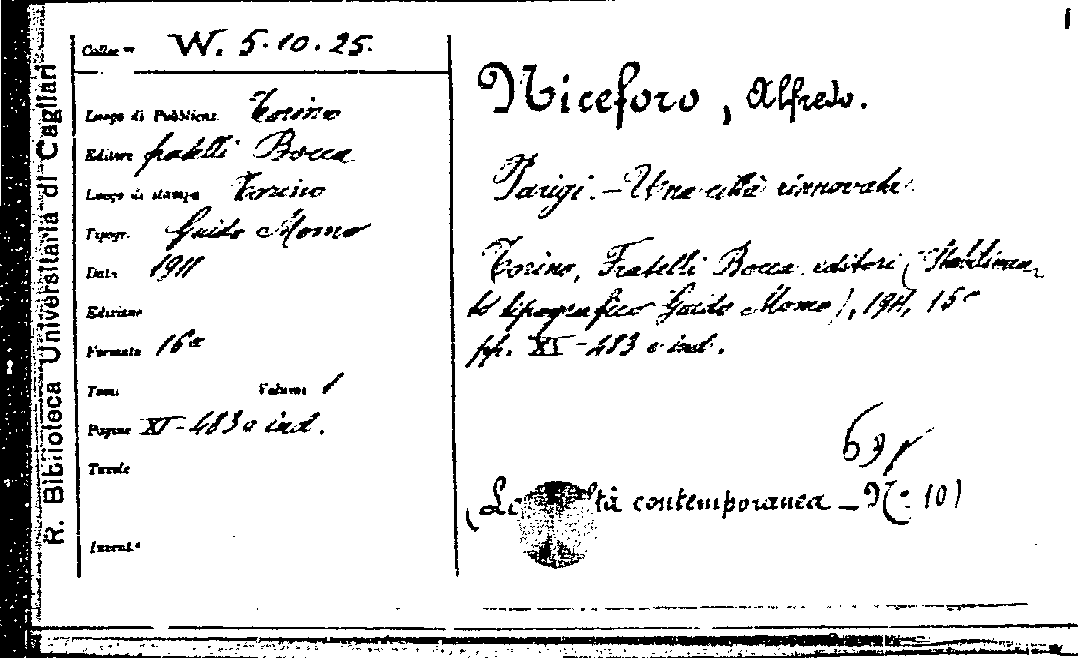 1
R. Biblioteca Universitaria di Cagliari
Colloc.ne W. 5.10.25.
Luogo di Pubblicaz. Torino
Editore fratelli Bocca
Luogo di stampa Torino
Tipogr. Guido Momo
Data 1911
Edizione
Formato 16º
Tomi Volumi 1
Pagine XI-483 e ind.
Tavole
Invent.º
Niceforo, Alfredo.
Parigi. - Una città rinnovata.
Torino, Fratelli Bocca editori (Stabilimen-
to tipografico Guido Momo), 1911, 16º
pp. XI-483 e ind.
691
(La tà contemporanea - Nº. 10)